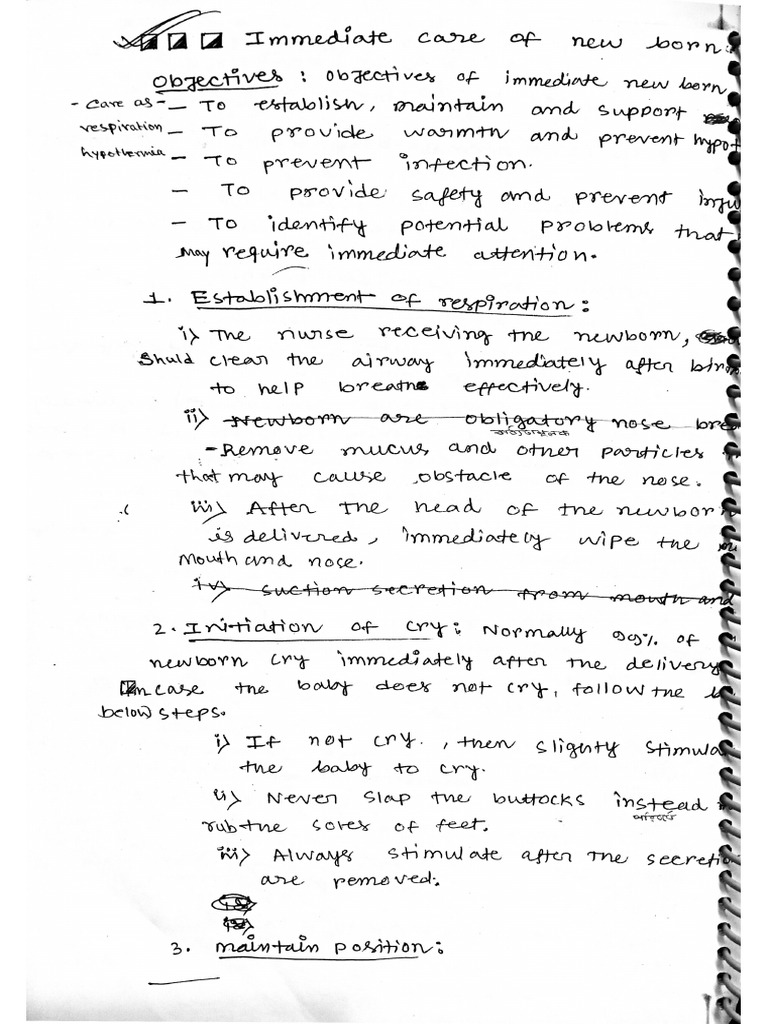 Immediate care of new born:
Objectives : Objectives of immediate new born
- care as - - To establish, maintain and support
respiration - To provide warmth and prevent hypot
hypothermia - To prevent infection.
- To provide safety and prevent inju
- To identify potential problems that
may require immediate attention.
1. Establishment of respiration:
i) The nurse receiving the newborn,
Shuld clear the airway immediately after bir
to help breath effectively.
ii) Newborn are obligatory nose bre
- Remove mucus and other particles
that may cause obstacle of the nose.
iii) After the head of the newborn
is delivered, immediately wipe the
mouth and nose.
iv) suction secretion from mouth and
2. Initiation of cry: Normally 99% of
newborn cry immediately after the delivery
In case the baby does not cry, follow the
below steps.
i) If not cry., then slighty stimula
the baby to cry.
ii) Never slap the buttocks instead
rub the soles of feet.
iii) Always stimulate after the secreti
are removed.
3. maintain position: